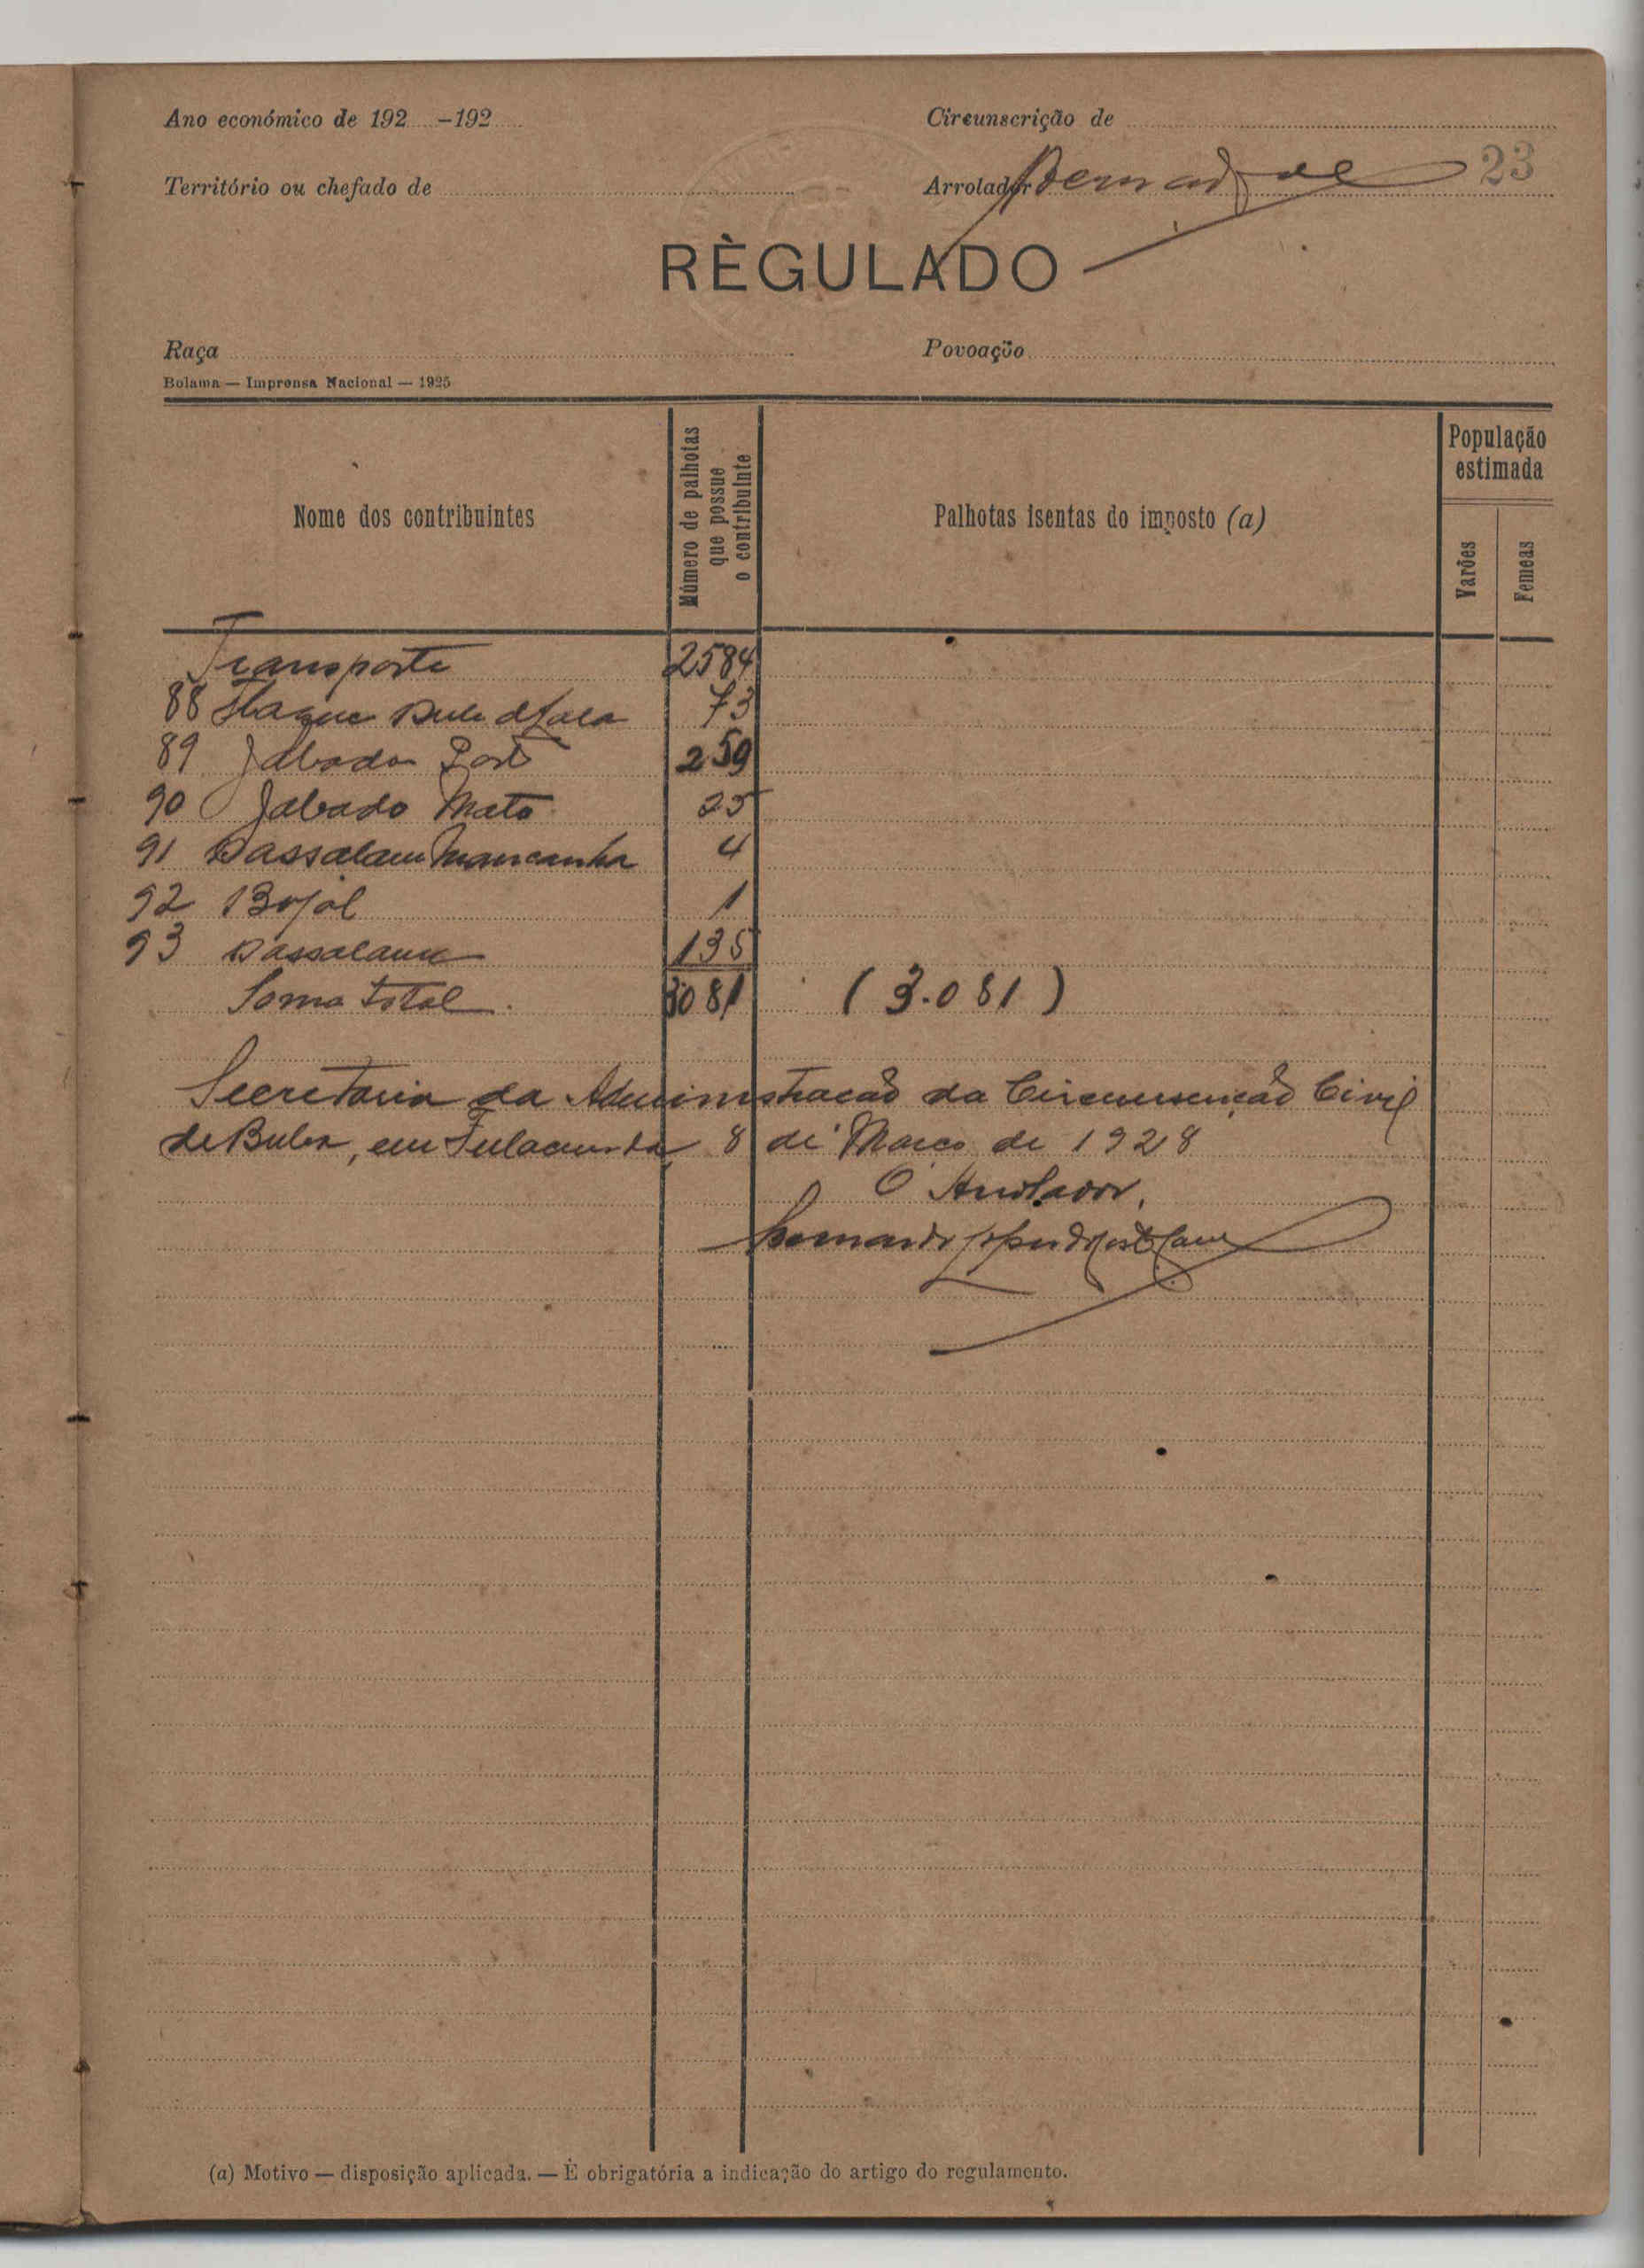 Ano económico de 192 -192
Circunscrição de
23
Território ou chefado de
Arrolador
RÈGULADO
Raça
Povoação
Bolama — Imprensa Nacional — 1925
Nome dos contribuintes
Número de palhotas que possue o contribuinte
Palhotas isentas do imposto (a)
População estimada
Varões
Femeas
Transporte 2584
88 73
89 Jabada Porto 259
90 Jabado Mato 25
91 Dassalam Mancanha 4
92 Bojol 1
93 Dassalame 135
Soma total 3081 (3.081)
Secretaria da Administracão da Circunscrição Civil
de Buba, em Fulacunda, 8 de Março de 1928
O Arrolador,
(a) Motivo — disposição aplicada. — É obrigatória a indicação do artigo do regulamento.